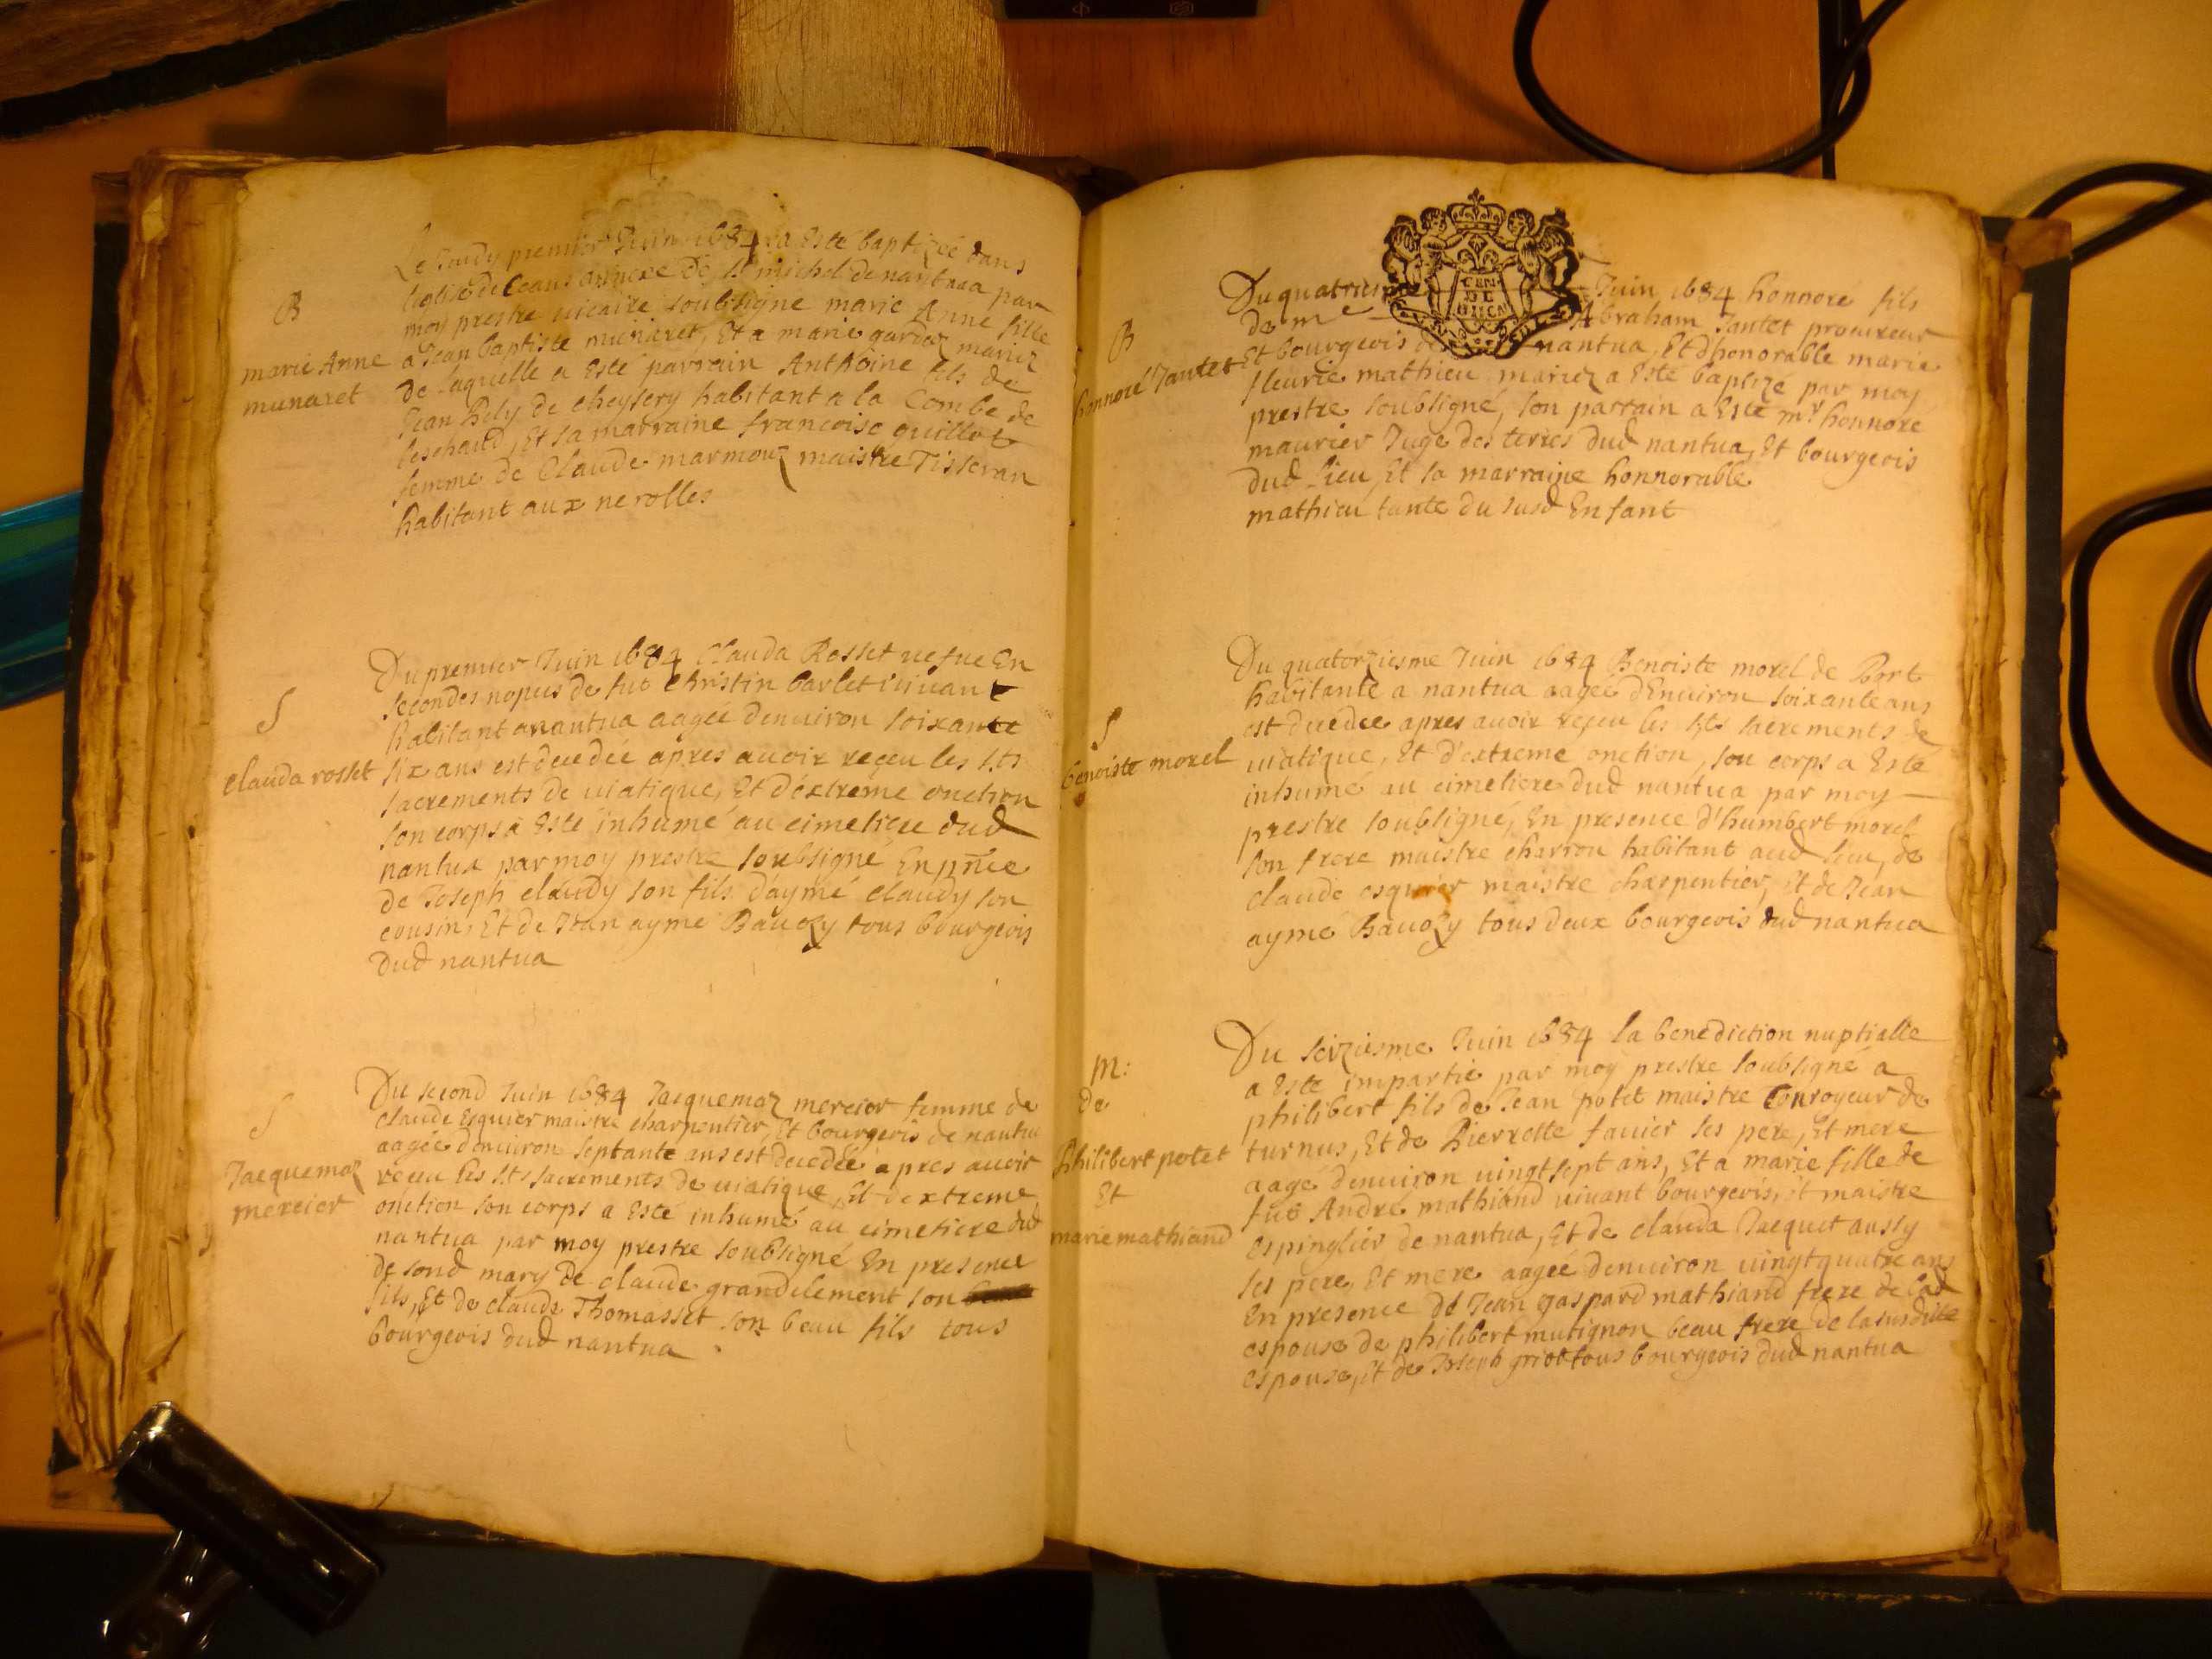 B
marie Anne
munaret
Le Jeudy premier Juin 1684 a Esté baptizée dans
leglise de ceans annexe de st michel de nantua par
moy prestre vicaire soubsigné marie Anne fille
a Jean baptiste munaret, Et a marie gardaz mariez
de laquelle a Esté parrain Anthoine fils de
Jean Rely de cheysery habitant a la Combe de
Et sa marraine francoise guillot
femme de Claude marmouz maistre Tisseran
habitant aux nerolles
S
clauda rosset
Du premier Juin 1684 Clauda Rosset vefue En
secondes nopces de fut christin barlet vivant
habitant a nantua aagée denuiron soixante
six ans est decedée apres auoir reçeu les sts
sacrements de viatique, Et d'extreme onction
son corps a Esté inhumé au cimetiere dud
nantua par moy prestre soubsigné En pnce
de Joseph claudy son fils d'aymé claudy son
cousin, Et de Jean aymé Bauozy tous bourgeois
dud nantua
S
Jacquemaz
mercier
Du second Juin 1684 Jacquemaz mercier femme de
claude Esquier maistre charpentier, Et bourgeois de nantua
aagée denuiron septante ans est decedée apres auoir
reçeu les sts sacrements de viatique, Et dextreme
onction son corps a Esté inhumé au cimetiere dud
nantua par moy prestre soubsigné En presence
de sond mary de claude grandclement son
fils, Et de claude Thomasset son beau fils tous
bourgeois dud nantua
B
honnoré Jantet
Du quatriesme Juin 1684 honnoré fils
de me Abraham Jantet procureur
Et bourgeois de nantua, Et d'honorable marie
fleurie mathieu mariez a Esté baptizé par moy
prestre soubsigné, son parrain a Esté mr honnoré
maurier Juge des terres dud nantua, Et bourgeois
dud lieu, Et sa marraine honnorable
mathieu tante du susd Enfant
S
benoiste morel
Du quatorziesme Juin 1684 Benoiste morel de Port
habitante a nantua aagée d'Enuiron soixante ans
est decedée apres auoir reçeu les sts sacrements de
viatique, Et d'extreme onction, son corps a Esté
inhumé au cimetiere dud nantua par moy
prestre soubsigné, En presence d'humbert morel
son frere maistre charron habitant aud lieu, de
claude esquier maistre charpentier, Et de Jean
aymé Bauozy tous deux bourgeois dud nantua
M:
de
Philibert potet
Et
marie mathiand
Du seiziesme Juin 1684 la benediction nuptialle
a Esté impartie par moy prestre soubsigné a
philibert fils de Jean potet maistre Conroyeur de
turnus, Et de Pierrette fauier ses pere, Et mere
aagé denuiron vingt sept ans, Et a marie fille de
fut André mathiand vivant bourgeois, Et maistre
espinglier de nantua, Et de clauda Jacquet aussy
ses pere, Et mere aagée denuiron vingt quatre ans
En presence de Jean gaspard mathiand frere de lad
espouse de philibert mutignon beau frere de la susditte
espouse, Et de Joseph griot tous bourgeois dud nantua